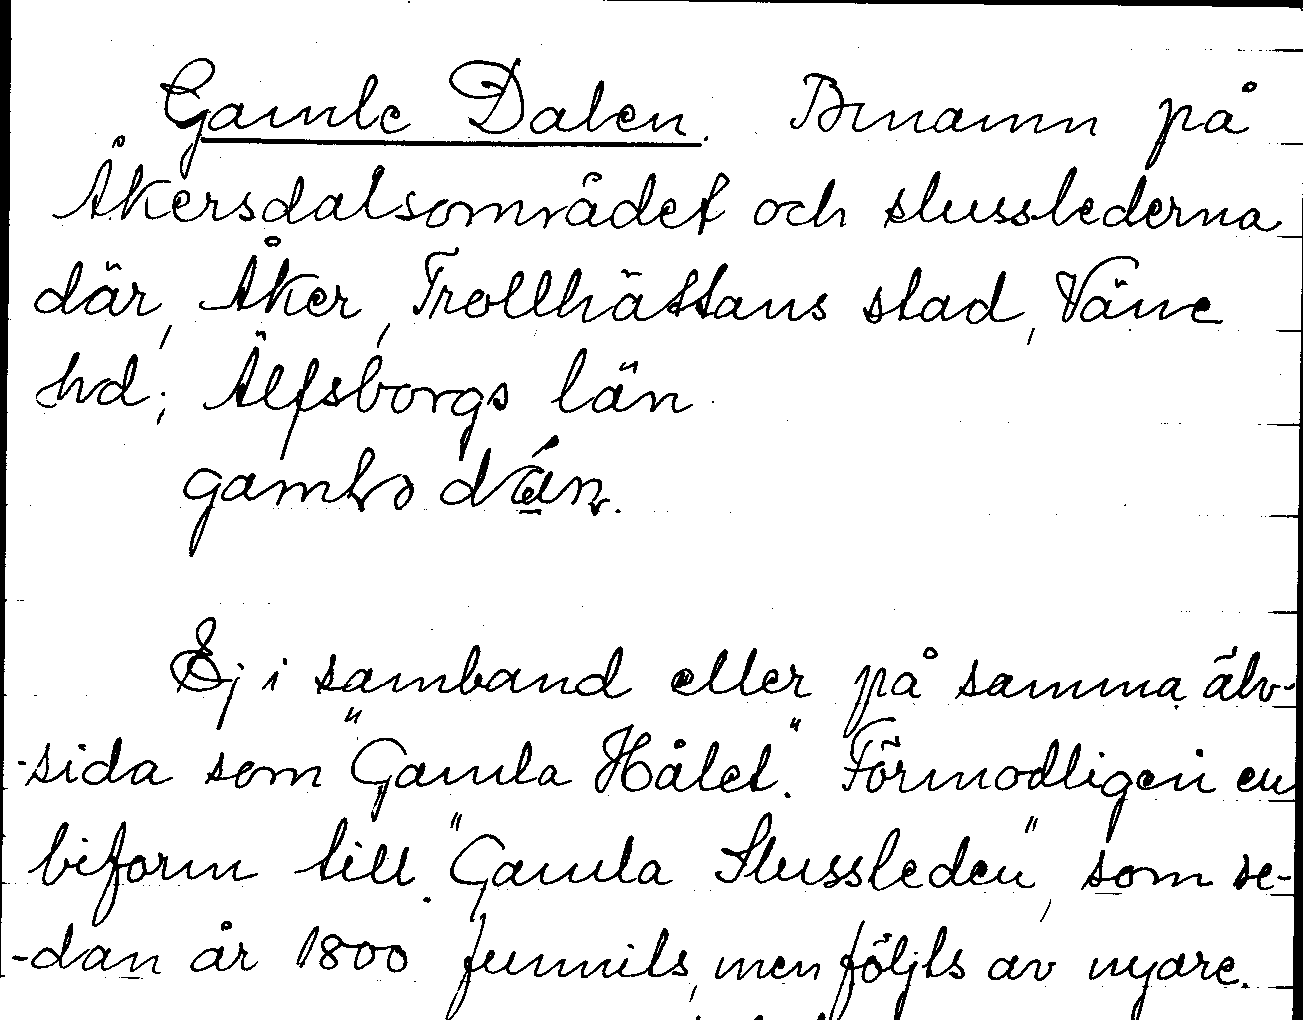 Gamle Dalen. Binamn på
Åkersdalsområdet och slusslederna
där, Åker, Trollhättans stad, Väne
hd; Älfsborgs län
Ej i samband eller på samma älv-
-sida som "Gamla Hålet". Förmodligen en
biform till "Gamla Slussleden", som se-
-dan år 1800 funnits, men följts av nyare.